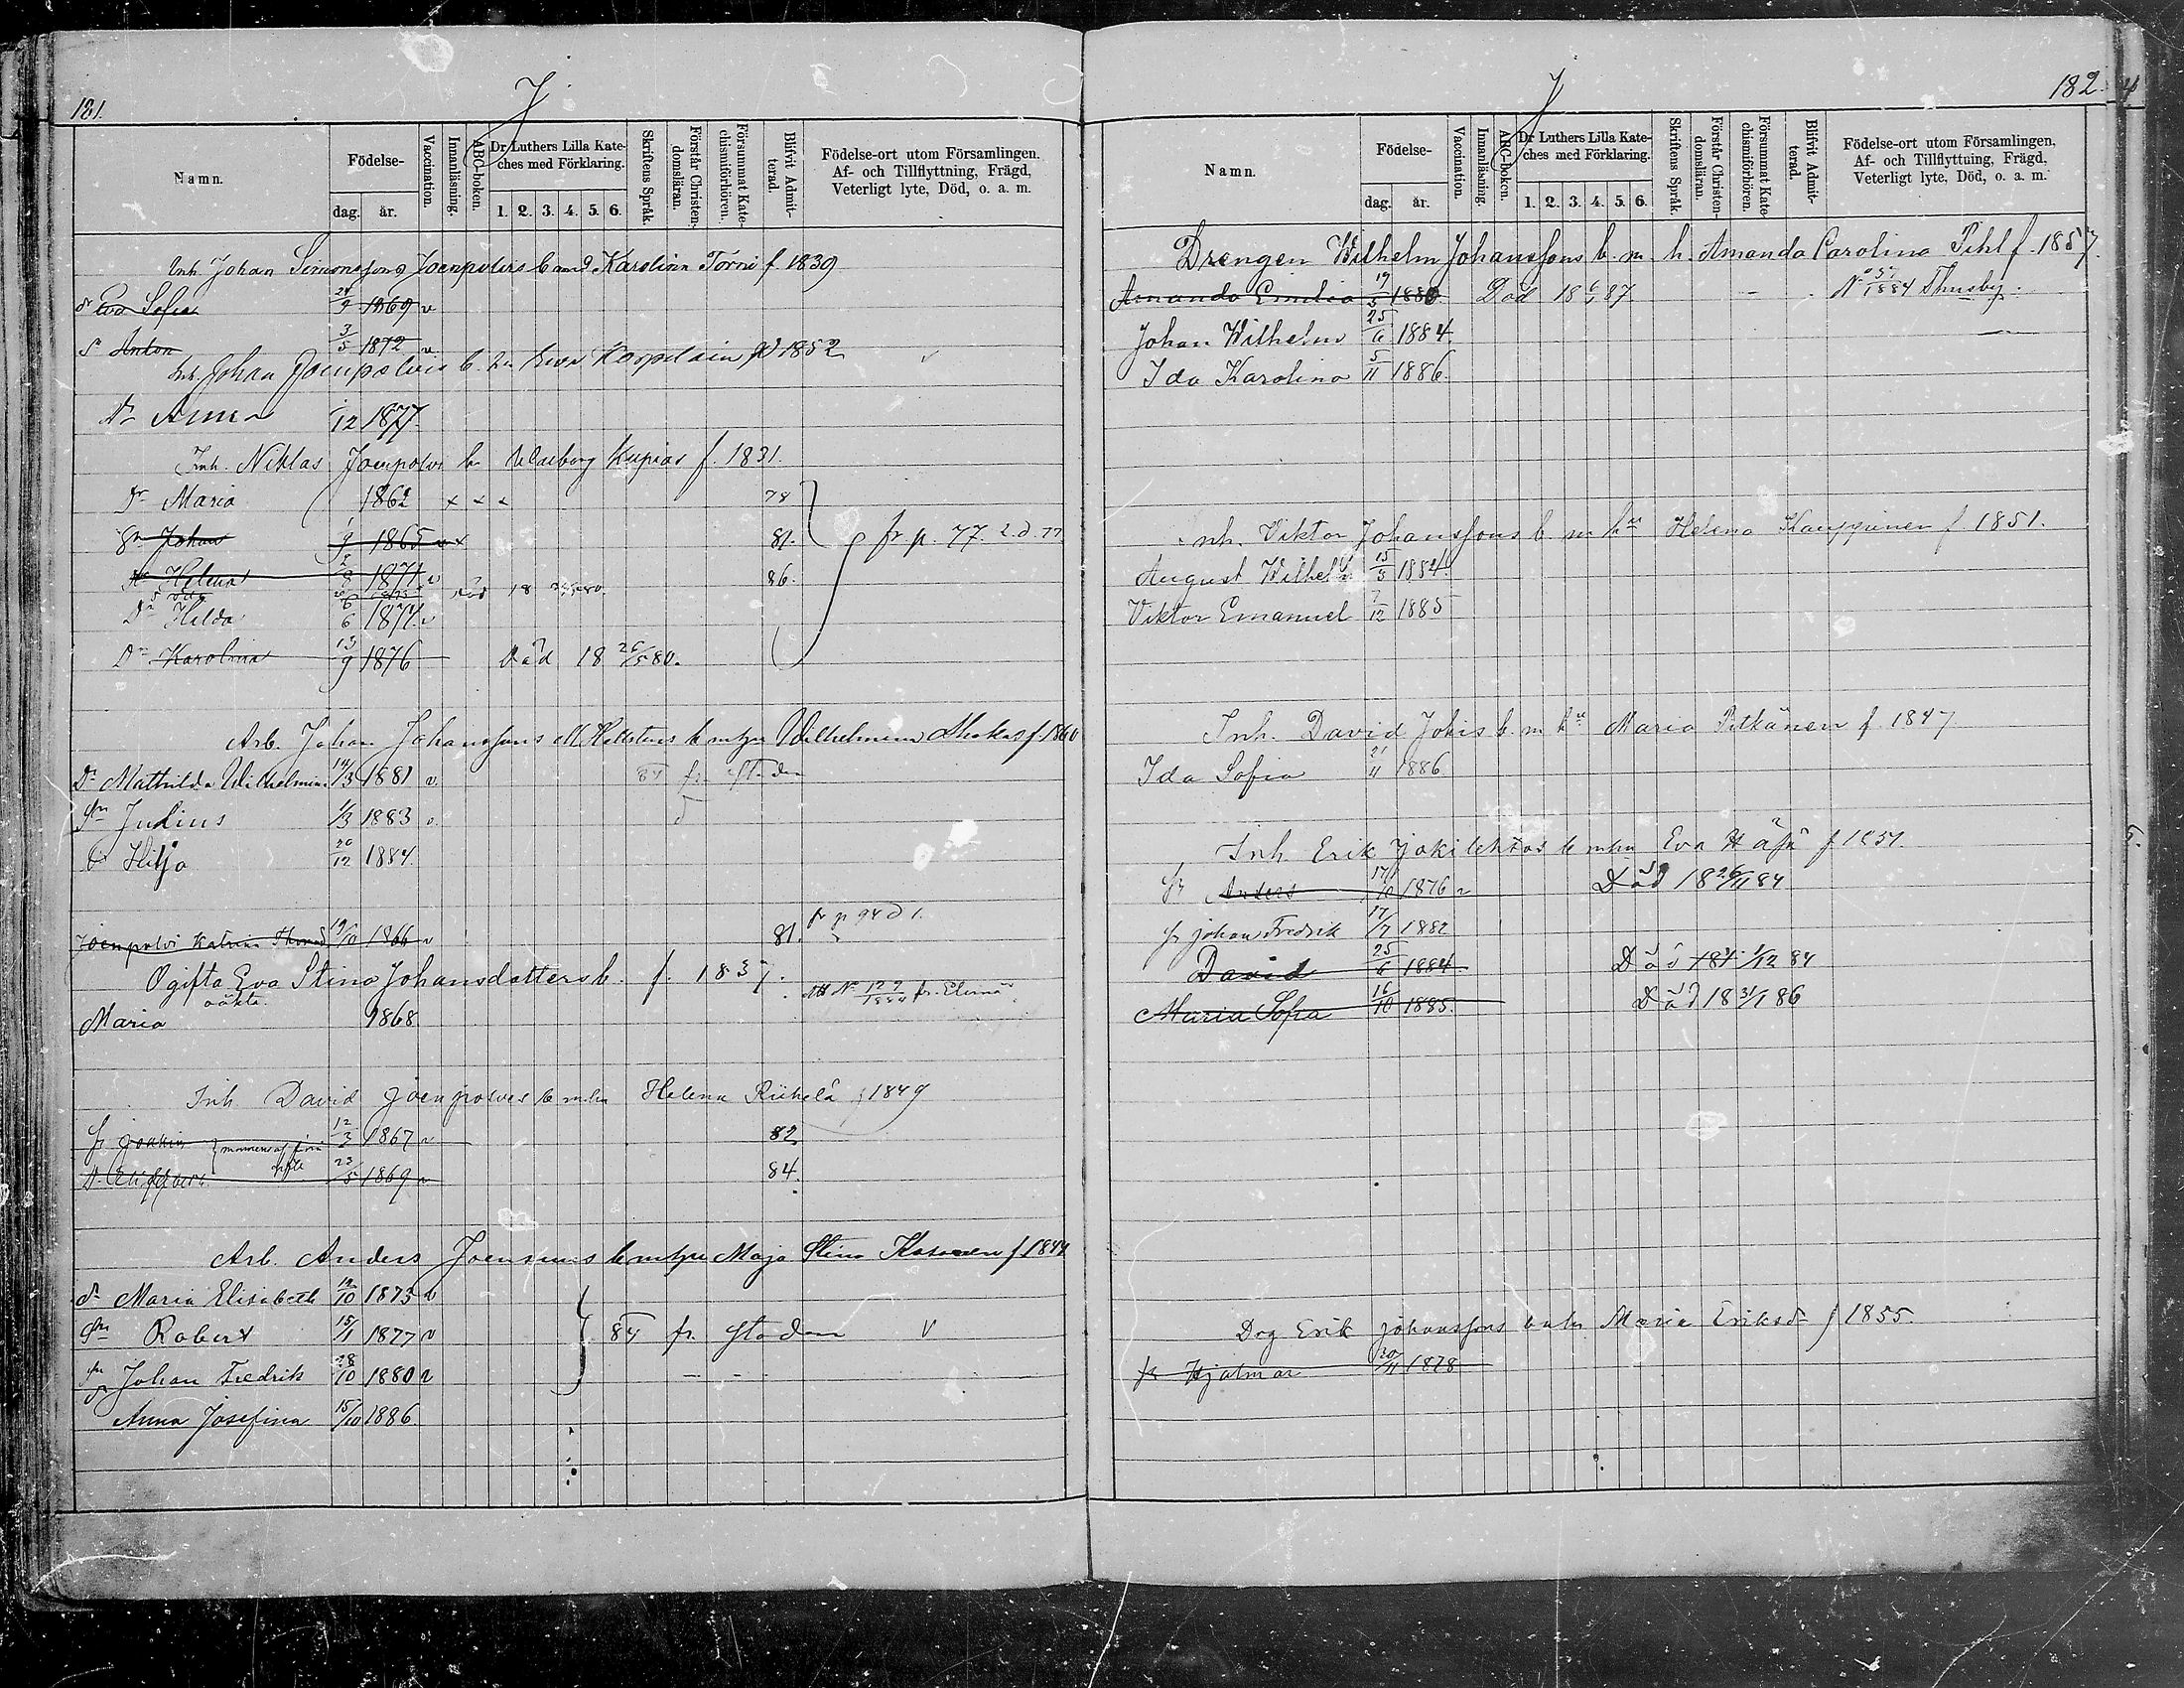 181.
J
Namn.
Födelse-
dag.
år.
Vaccination.
Innanläsning.
ABC-boken.
Dr Luthers Lilla Kate-
ches med Förklaring.
1. 2. 3. 4. 5. 6.
Skriftens Språk.
Förstår Christen-
domsläran.
Försummat Kate-
chismiförhören.
Blifvit Admit-
terad.
Födelse-ort utom Församlingen.
Af- och Tillflyttning, Frägd,
Veterligt lyte, Död, o. a. m.
Inh. Johan Simonssons Joenpolvis b med Karolina Törnö f. 1839
dr Eva Sofia 9 1869 v
s Anton 3/5 1872 v
Inh. Johan Joenpolvis b. m. Karpelain f 1852
Dr Anna 12 1877
Inh. Niklas Joenpolvi b Kupias f. 1831.
Dr Maria 1862 x x x 78
Sn Johan 9 1865 v x 81. fr. p. 77. 2. d. 77
Dr Helena 8 1871 v 86.
Död 18 80.
Dr Hilda 6 1871 v
Dr Karolina 13/9 1876 Död 18 26/5 80.
Arb. Johan Johanssons Hellstens b m hu Wilhelmina f. 1860
Dr Mathilda Wilhelmina 14/3 1881 v. 84 fr. staden
Sn Julius 1/3 1883 v.
d Hilja 20/12 1884
Joenpolvi Katrina 19/10 1866 v 81. fr p 94 d 1.
Ogifta Eva Stina Johansdotters b. f. 1837.
oäkta.
Maria 1868
Inh. David Joenpolves b m hu Helena Riihelä f 1849
sr Joakim 12/3 1867 v 82
D. 23/5 1869 v 84.
Arb. Anders Joensuus b m hu Maja Stina Kosonen f. 1844
dr Maria Elisabeth 19/10 1873 v
Sn Robert 15/1 1877 v 84 fr. staden v
sn Johan Fredrik 28/10 1880 v
Anna Josefina 15/10 1886
182.
J
Namn.
Födelse-
dag.
år.
Vaccination.
Innanläsning.
ABC-boken.
Dr Luthers Lilla Kate-
ches med Förklaring.
1. 2. 3. 4. 5. 6.
Skriftens Språk.
Förstår Christen-
domsläran.
Försummat Kate-
chismiförhören.
Blifvit Admit-
terad.
Födelse-ort utom Församlingen,
Af- och Tillflyttuing, Frägd,
Veterligt lyte, Död, o. a. m.
Drengen Wilhelm Johanssons b. m. h. Amanda Carolina Pihl f. 1857.
Amanda Emilia 19/5 1880 Död 18 6/1 87 No 57/1884 Thusby.
Johan Wilhelm 25/6 1884.
Ida Karolina 5/11 1886.
Inh. Viktor Johanssons b m hu Helena Kauppinen f 1851.
August Wilhelm 15/3 1884.
Viktor Emanuel 7/12 1885
Inh. David Jokis b. m hu Maria Pitkänen f 1847
Ida Sofia 21/11 1886
Inh. Erik Jokilehtos b m hu Eva Häjä f 1851.
sr Anders 17/10 1876 v Död 18 26/11 84
sr Johan Fredrik 17/7 1882
David 25/6 1884 Död 18 1/12 84
Maria Sofia 16/10 1885. Död 18 31/1 86
Drg Erik Johanssons b m hu Maria Eriksdr f 1855.
sr Hjalmar 20/11 1878